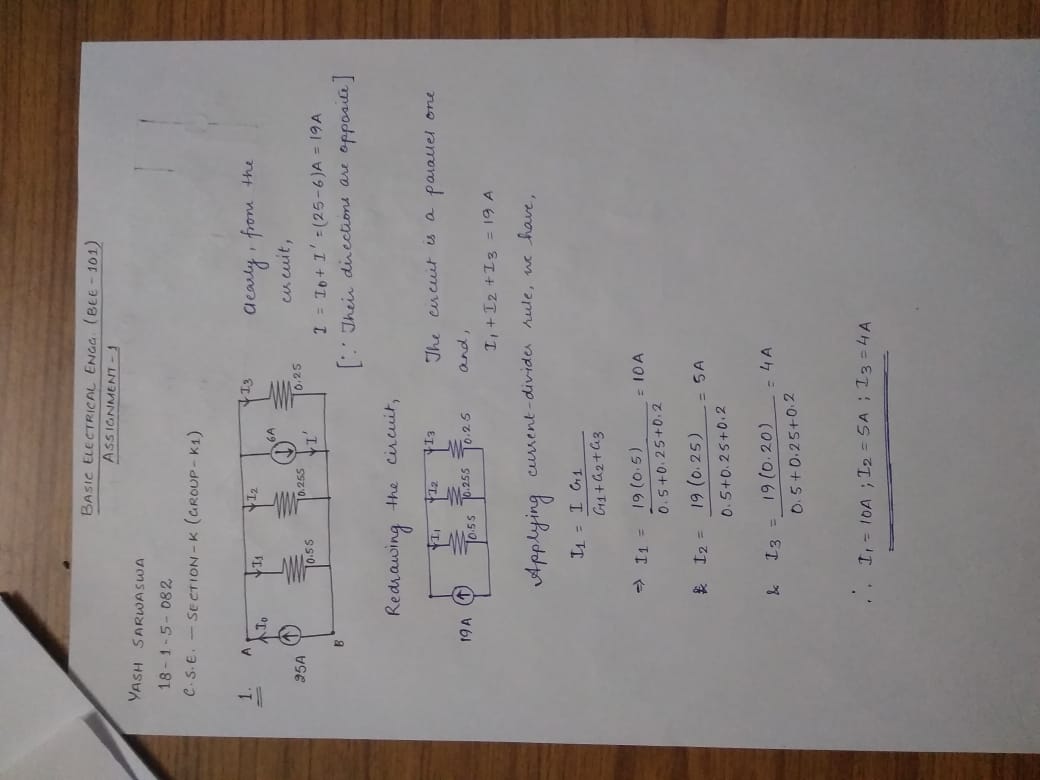 BASIC ELECTRICAL ENGG. (BEE-101)
ASSIGNMENT-1
YASH SARWASWA
18-1-5-082
C.S.E. - SECTION-K (GROUP-K1)
1.
A
I0
25A
B
I1
0.5S
I2
0.25S
6A
I'
I3
0.2S
Clearly, from the
circuit,
I = I0 + I' = (25-6)A = 19A
[∵ Their directions are opposite]
Redrawing the circuit,
19A
I1
0.5S
I2
0.25S
I3
0.2S
The circuit is a parallel one
and,
I1 + I2 + I3 = 19 A
Applying current-divider rule, we have,
I1 = I G1 / G1+G2+G3
⇒ I1 = 19(0.5) / 0.5+0.25+0.2 = 10A
& I2 = 19(0.25) / 0.5+0.25+0.2 = 5A
& I3 = 19(0.20) / 0.5+0.25+0.2 = 4A
∴ I1 = 10A ; I2 = 5A ; I3 = 4A